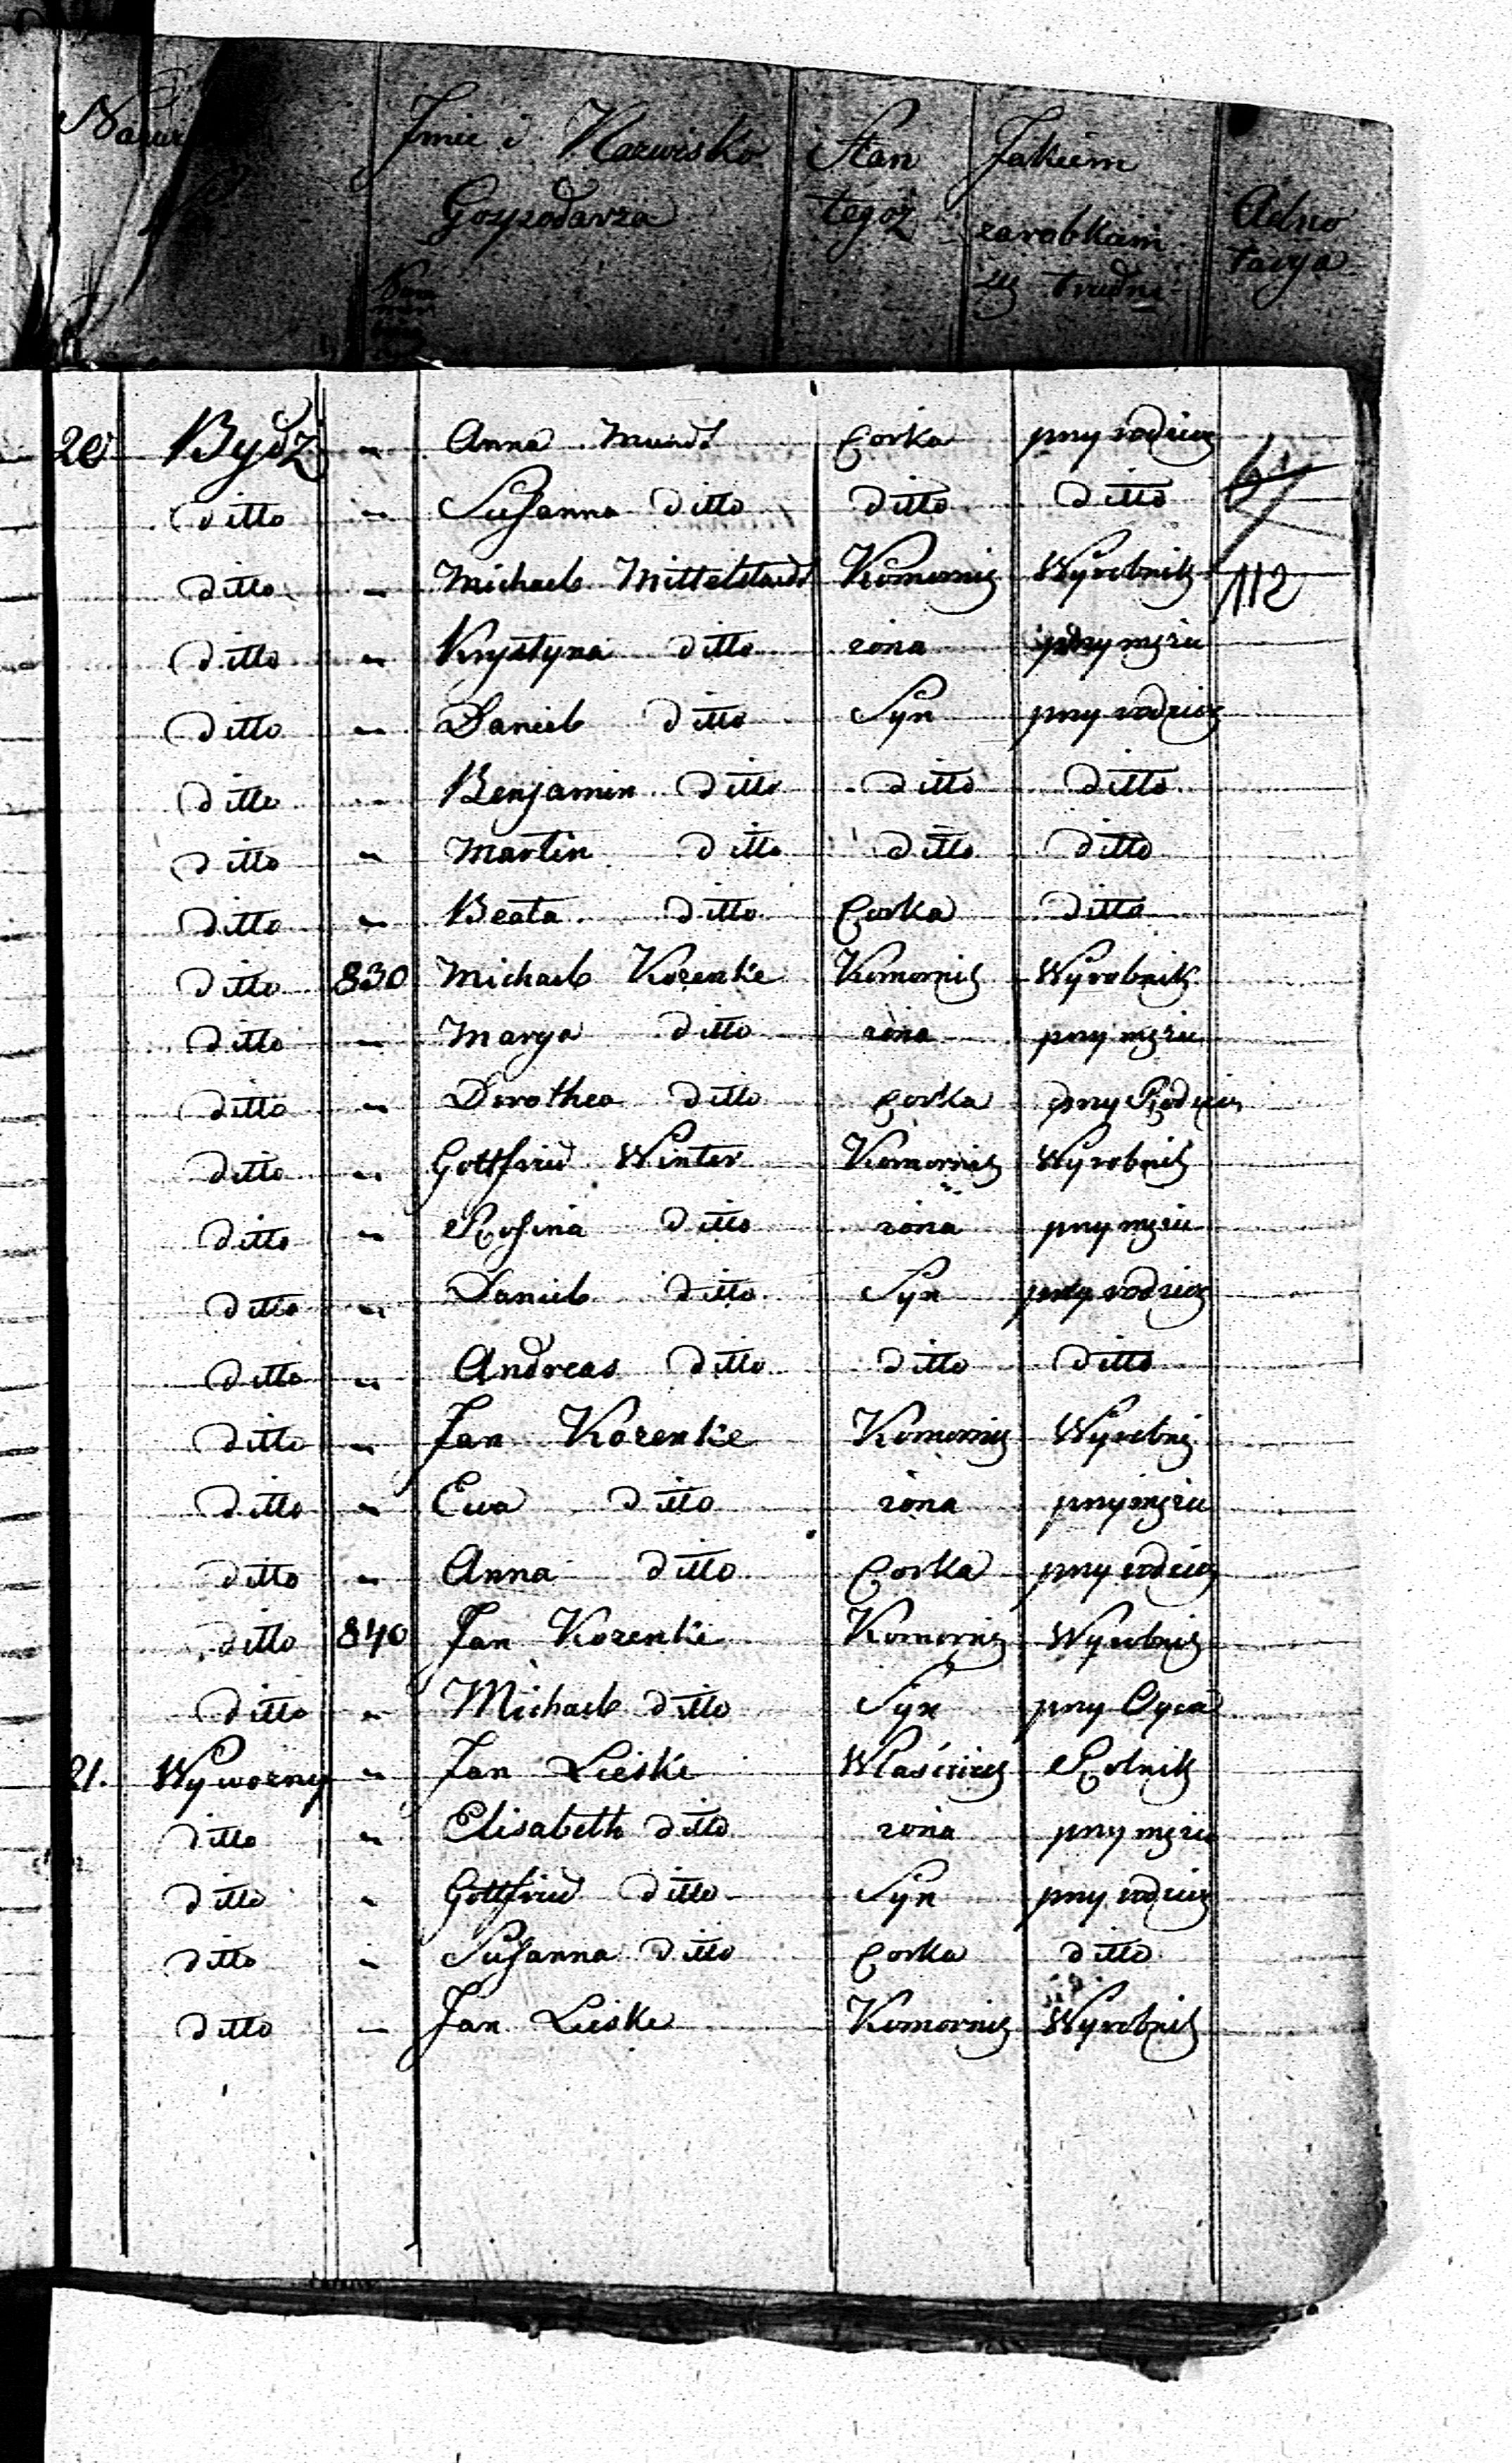 Imie i Nazwisko Gospodarza | Stan tegoż | Jakiem zarobkiem się trudni | Adnotacya
20 Bydź " Anna Mundt Corka przy rodzicz
ditto " Susanna ditto ditto ditto
ditto " Michael Mittelstaedt Komornik Wyrobnik 112
ditto " Krystyna ditto żona przy mężu
ditto " Daniel ditto Syn przy rodzicz
ditto " Benjamin ditto ditto ditto
ditto " Martin ditto ditto ditto
ditto " Beata ditto Corka ditto
ditto 830 Michael Korenke Komornik Wyrobnik
ditto " Marya ditto żona przy mężu
ditto " Dorothea ditto Corka przy Rodzicz
ditto " Gottfried Winter Komornik Wyrobnik
ditto " Rosina ditto żona przy mężu
ditto " Daniel ditto Syn przy rodzicz
ditto " Andreas ditto ditto ditto
ditto " Jan Korenke Komornik Wyrobnik
ditto " Ewa ditto żona przy mężu
ditto " Anna ditto Corka przy rodzicz
ditto 840 Jan Korenke Komornik Wyrobnik
ditto " Michael ditto Syn przy Oyca
21. Wyworny " Jan Lieske Właściciel Rolnik
ditto " Elisabeth ditto żona przy mężu
ditto " Gottfried ditto Syn przy rodzicz
ditto " Susanna ditto Corka ditto
ditto " Jan Lieske Komornik Wyrobnik